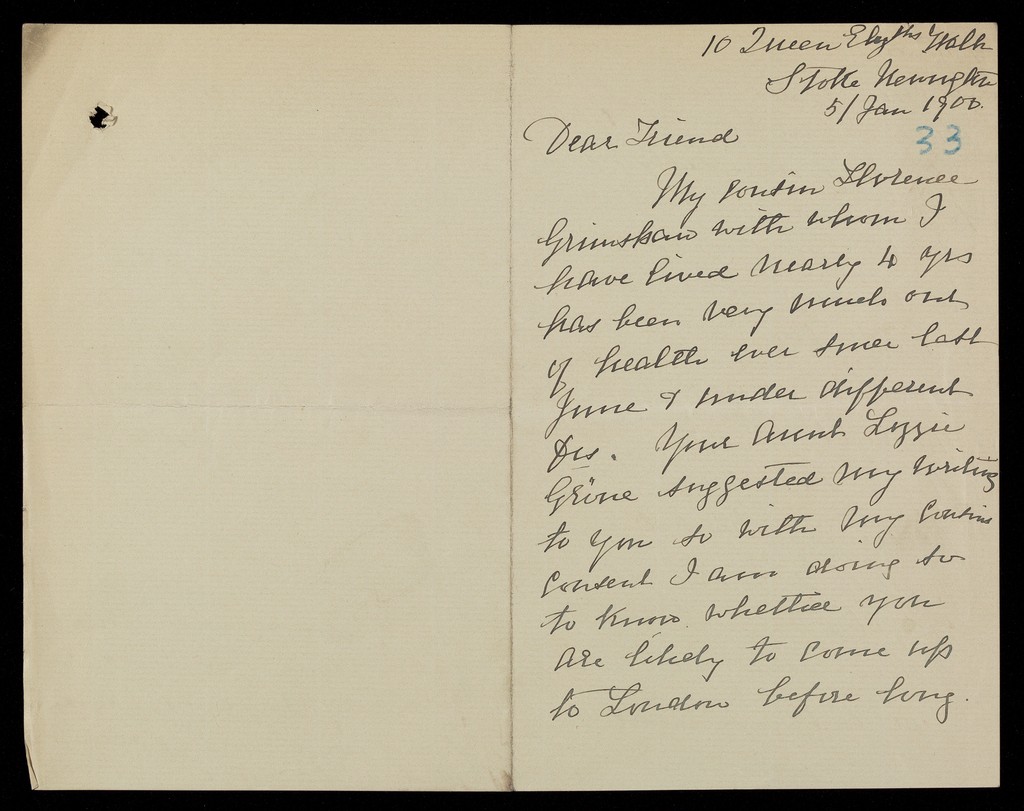 10 Queen Elizths Walk
Stoke Newington
5/ Jan 1900.
33
Dear Friend
My cousin Florence
Grimshaw with whom I
have lived nearly 4 yrs
has been very much out
of health ever since last
June & under different
Drs. Your Aunt Lizzie
Grove suggested my writing
to you so with my cousins
consent I am doing so
to know whether you
are likely to come up
to London before long.